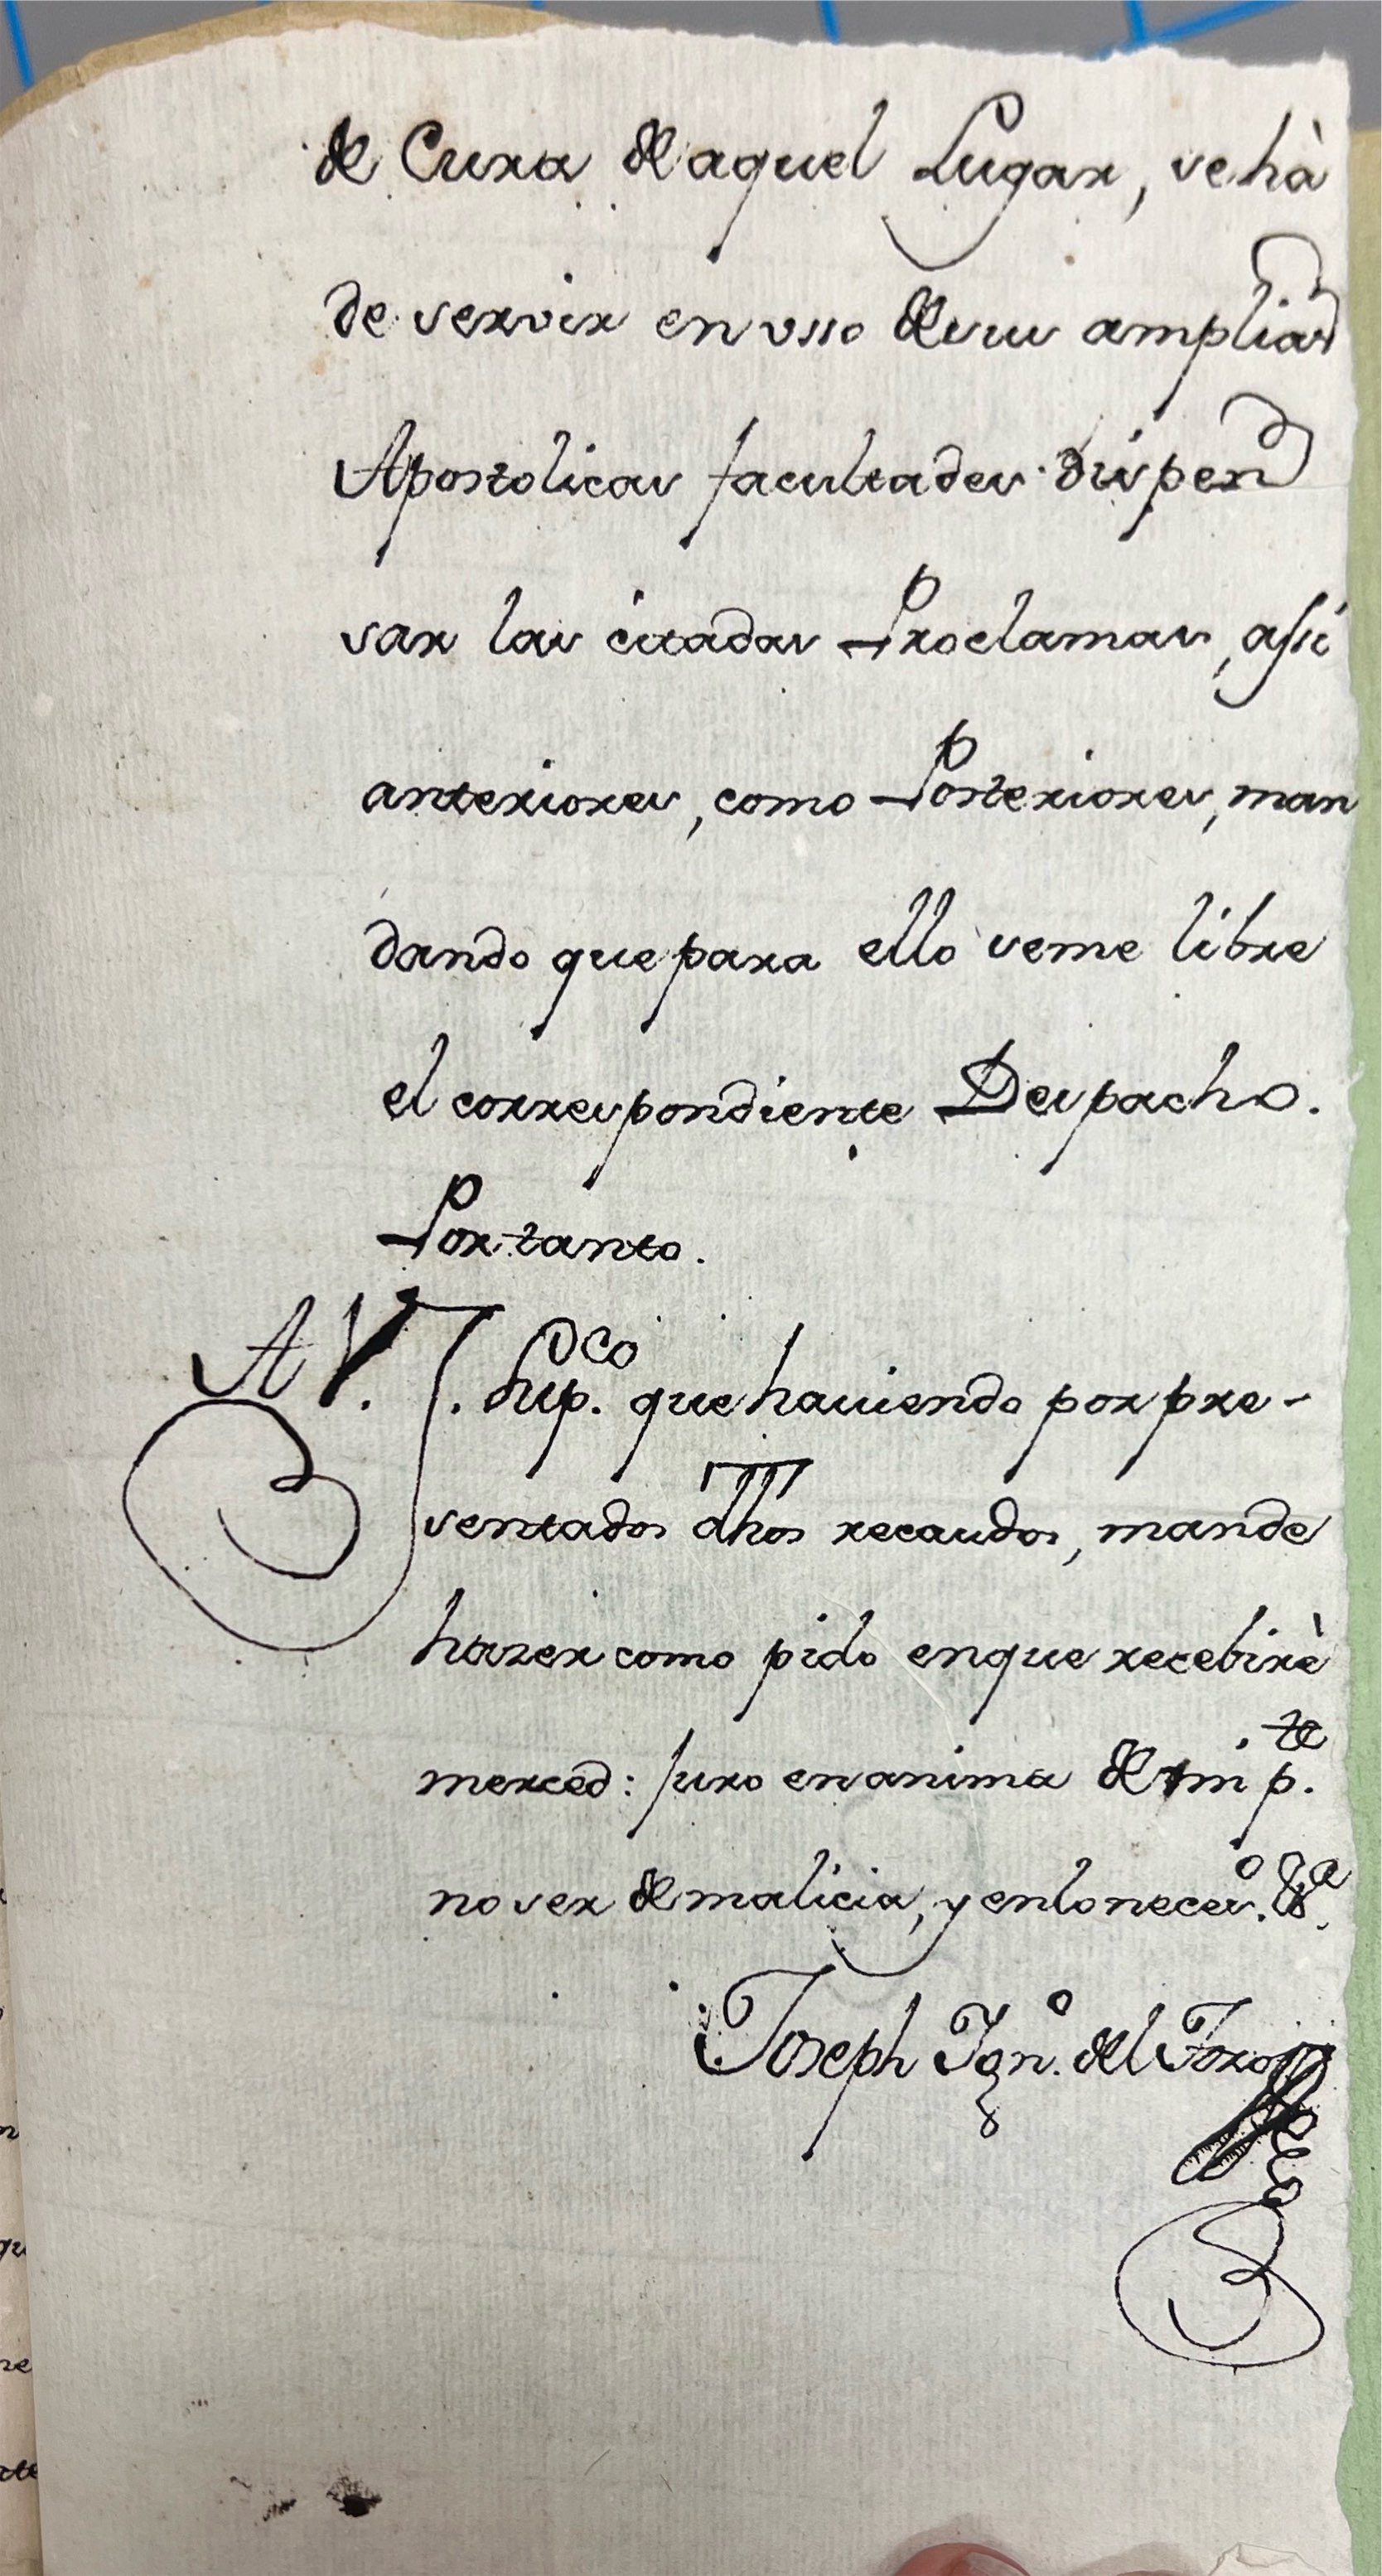 de Cura de aquel Lugar, se hà
de servir en vsso de su amplias
Apostolicas facultades dispen
sar las citadas Proclamas, assi
anteriores, como Posteriores, man
dando que para ello se me libre
el correspondiente Despacho.
Por tanto.
A V. S. Sup.co que haviendo por pre-
sentados dhos recaudos, mande
hazer como pido en que recebirè
merced: juro en anima de mi p.te
no ser de malicia, y en lo neces.o &a.
Joseph Ygn.o del Toro